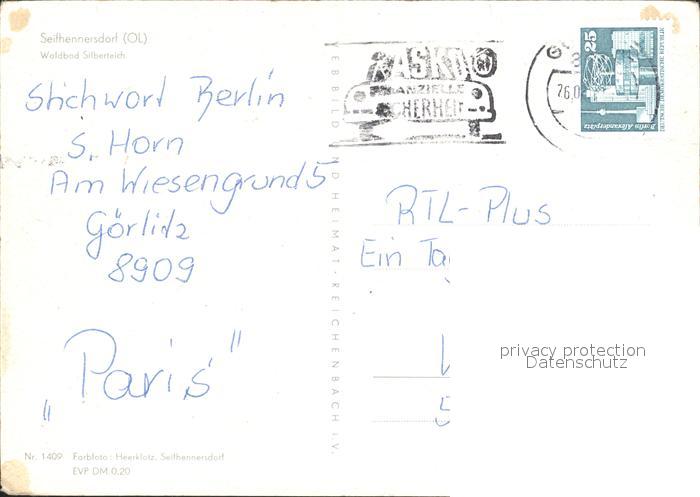 Seifhennersdorf (OL)
Waldbad Silberteich
Stichwort Berlin
S. Horn
Am Wiesengrund 5
Görlitz
8909
„Paris"
Nr. 1409 Farbfoto: Heerklotz, Seifhennersdorf
EVP DM 0,20
BILD UND HEIMAT · REICHENBACH I. V.
KASKO
FINANZIELLE
SICHERHEIT
25
Berlin, Alexanderplatz
RTL-Plus
Ein Ta
privacy protection
Datenschutz